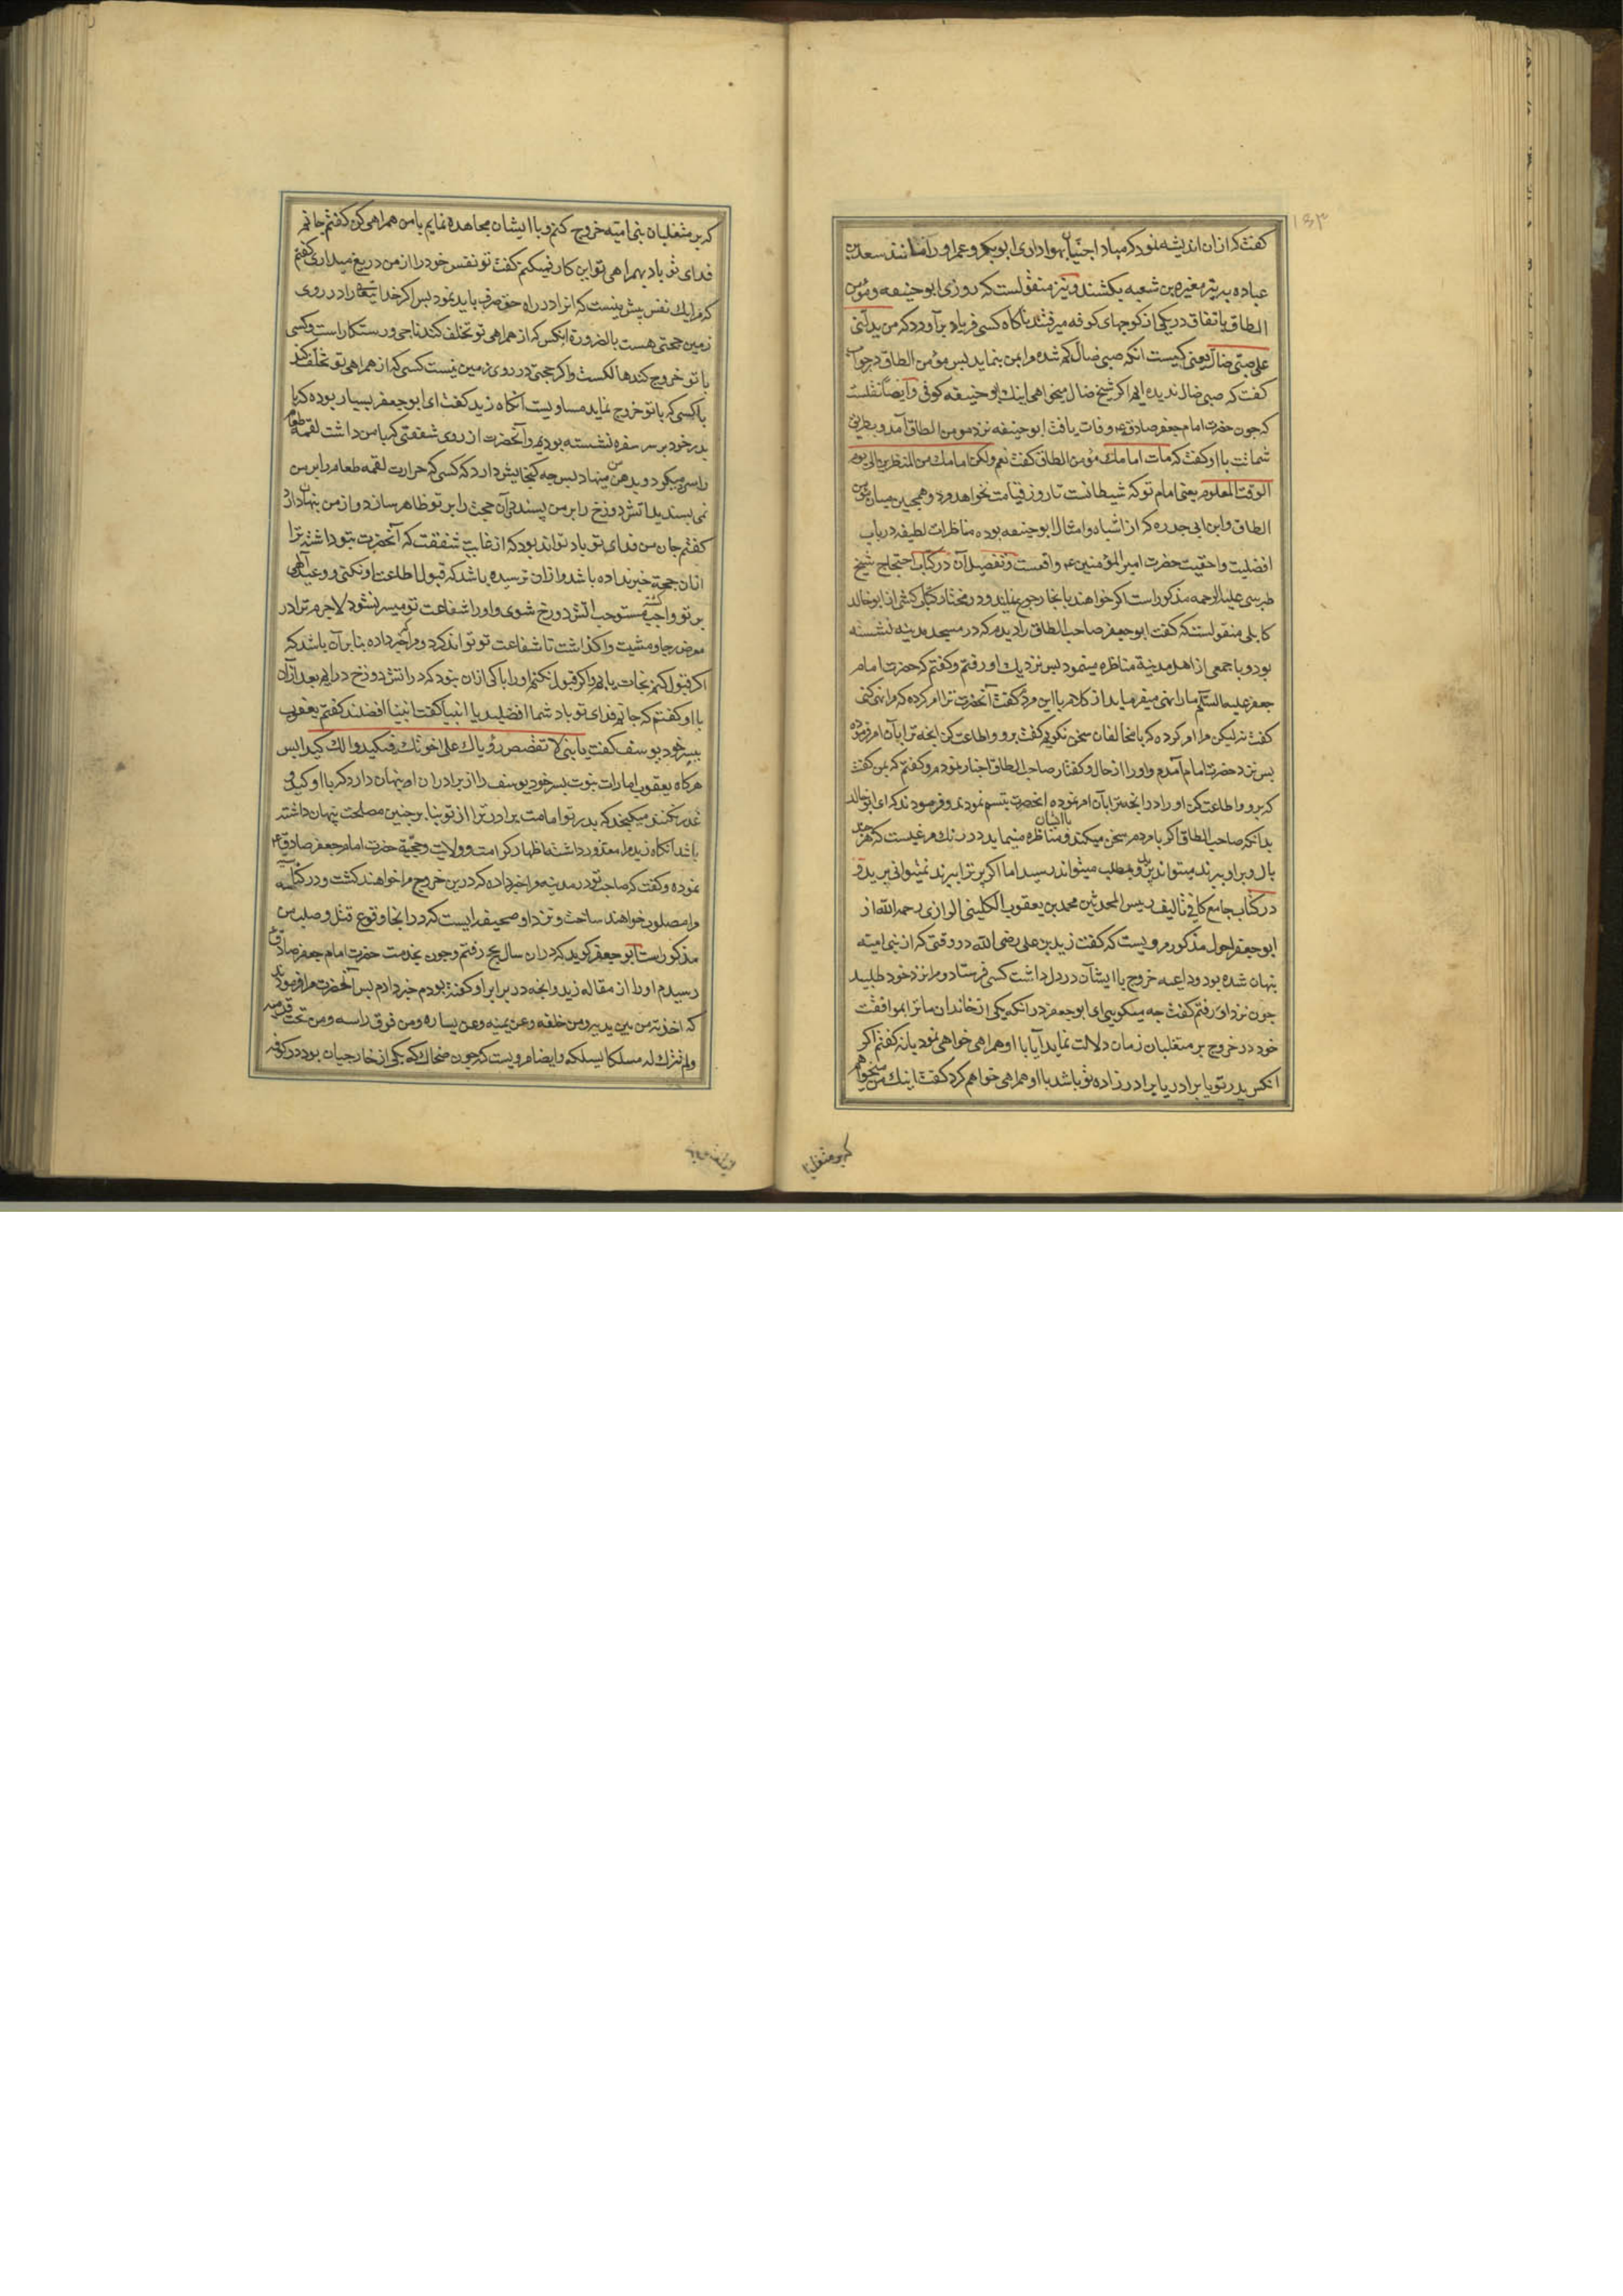 ۱۵۳
کفت که ازان اندیشه نمود که مبادا جنیان بهواداری ابوبکر و عمر او را مانند سعد بن
عباده بتیر مغیرة بن شعبه بکشند و نیز منقولست که روزی ابوحنیفه و مؤمن
الطاق باتفاق در یکی از کوچهای کوفه میرفتند ناکاه کسی فریاد برآورد که من یدلنی
علی صبی ضال یعنی کیست انکه صبی ضال کم شده را بمن بنماید پس مؤمن الطاق در جواب
کفت که صبی ضال ندیده ایم اکر شیخ ضال میخواهی اینك ابو حنیفه کوفی و ایضا نقلست
که چون حضرت امام جعفر صادق ع وفات یافت ابوحنیفه نزد مومن الطاق آمد و بطریق
شماتت با او کفت که مات امامك مؤمن الطاق کفت نعم ولکن امامك من المنظرین الی یوم
الوقت المعلوم یعنی امام تو که شیطانست تا روز قیامت نخواهد مرد و همچنین میان مؤمن
الطاق و ابن ابی حدره که از اشباه و امثال ابوحنیفه بوده مناظرات لطیفه در باب
افضلیت و احقیت حضرت امیر المؤمنین ع واقعست و تفصیل آن در کتاب احتجاج شیخ
طبرسی علیه الرحمه مذکور است اکر خواهند بانجا رجوع نمایند و در مختار کتاب کشی از ابو خالد
کابلی منقولست که کفت ابو جعفر صاحب الطاق را دیدم که در مسجد مدینه نشسته
بود و با جمعی از اهل مدینة مناظره مینمود پس نزدیك او رفتم و کفتم که حضرت امام
جعفر علیه السلام ما را نهی میفرماید از کلام با این مردم کفت آنحضرت ترا امر کرده که مرا نهی کنی
کفت نه لیکن مرا امر کرده که با مخالفان سخن نکویم کفت برو و اطاعت کن انچه ترا بآن امر فرموده
پس نزد حضرت امام آمدم و او را از حال و کفتار صاحب الطاق اخبار نمودم و کفتم که بمن کفت
که برو و اطاعت کن او را در انچه ترا بآن امر نموده انحضرت تبسم نمودند و فرمودند که ای ابو خالد
بدانکه صاحب الطاق اکر با مردم سخن میکند و با ایشان مناظره مینماید در رنك مرغیست که هر چند
بال و پر او ببرند میتواند پرید و بمطلب میتواند رسید اما اکر پر ترا ببرند نمیتوانی پرید و
در کتاب جامع کافی تالیف رییس المحدثین محمد بن یعقوب الکلینی الرازی رحمه الله از
ابو جعفر احول مذکور مرویست که کفت زید بن علی رضی الله در وقتی که از بنی امیه
پنهان شده بود و داعیه خروج با ایشان در دل داشت کسی فرستاد و مرا نزد خود طلبید
چون نزد او رفتم کفت چه میکویی ای ابو جعفر در انکه یکی از خاندان ما ترا بموافقت
خود در خروج بر متغلبان زمان دلالت نماید آیا با او همراهی خواهی نمود یا نه کفتم اکر
انکس پدر تو یا برادر یا برادر زاده تو باشد با او همراهی خواهم کرد کفت اینك من میخواهم
که بر متغلبان
که بر متغلبان بنی امیه خروج کنم و با ایشان مجاهده نمایم با من همراهی کن کفتم جانم
فدای تو باد بهمراهی تو این کار نمیکنم کفت تو نفس خود را از من دریغ میداری کفتم
که مرا یك نفس بیش نیست که انرا در راه حق صرف باید نمود پس اکر خدا تعالی را در روی
زمین حجتی هست بالضروره انکس که از همراهی تو تخلف کند ناجی و رستکار است و کسی
با تو خروج کند هالکست و اکر حجتی در روی زمین نیست کسی که از همراهی تو تخلف کند
با کسی که با تو خروج نماید مساویست انکاه زید کفت ای ابو جعفر بسیار بوده که با
پدر خود بر سر سفره نشسته بودیم و آنحضرت از روی شفقتی که با من داشت لقمه طعام
را سرد میکرد و بدهن من مینهاد پس چه کنجایش دارد که کسی که حرارت لقمه طعام را بر من
نمی پسندید آتش دوزخ را بر من پسندد و آن حجت را بر تو ظاهر سازد و از من پنهان دارد
کفتم جان من فدای تو باد تواند بود که از غایت شفقت که آنحضرت بتو داشته ترا
ازان حجة خبر نداده باشد و ازان ترسیده باشد که قبول اطاعت او نکنی و وعید آلهی
بر تو واجب کشته مستوجب اتش دوزخ شوی و او را شفاعت تو میسر نشود لاجرم ترا در
معرض رجا و مشیت واکذاشت تا شفاعت تو تواند کرد و مرا که خبر داده بنا بر آن باشد که
اکر قبول کنم نجات یابم و اکر قبول نکنم او را باکی ازان نبود که در اتش دوزخ درایم بعد ازان
با او کفتم که جانم فدای تو باد شما افضلید یا انبیا کفت انبیا افضلند کفتم یعقوب
بپسر خود یوسف کفت یا بنی لا تقصص رؤیاك علی اخوتك فیکیدوا لك کیدا پس
هرکاه یعقوب امارات نبوت پسر خود یوسف را از برادران او پنهان دارد که با او کید و
غدر نکنند میکنجد که پدر تو امامت برادر ترا از تو بنا بر چنین مصلحت پنهان داشته
باشد انکاه زید مرا معذور داشته اظهار کرامت و ولایت و حجیة حضرت امام جعفر صادق ع
نموده و کفت که صاحب تو در مدینه مرا خبر داده که درین خروج مرا خواهند کشت و در کناسه
مرا مصلوب خواهند ساخت و نزد او صحیفه ایست که در انجا وقوع قتل و صلب من
مذکور است ابو جعفر کوید که دران سال بحج رفتم و چون بخدمت حضرت امام جعفر صادق
رسیدم او را از مقاله زید و انچه در برابر او کفته بودم خبر دادم پس آنحضرت مرا فرمودند
که اخذته من بین یدیه و من خلفه و عن یمینه و عن یساره و من فوق راسه و من تحت قدمیه
ولم تترك له مسلکا یسلکه و ایضا مرویست که چون ضحاك که یکی از خارجیان بود در کوفه